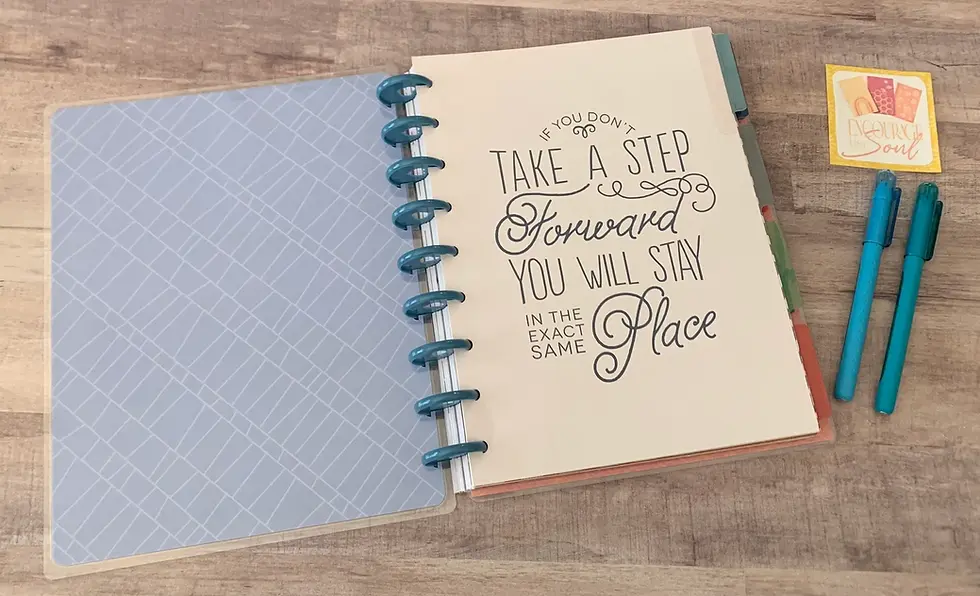 IF YOU DON'T
TAKE A STEP
Forward
YOU WILL STAY
IN THE
EXACT
SAME
Place
ENCOURAGE
Soul